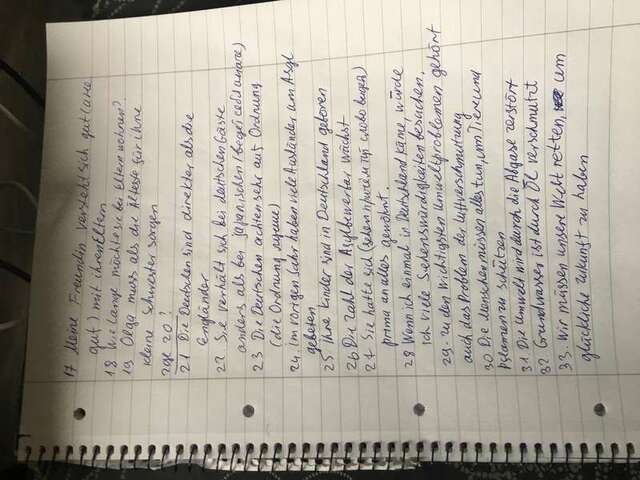 17 Meine Freundin versteht sich gut (ane
gut) mit ihren Eltern
18 Wie Lange möchte sie bei Eltern wohnen?
19 Olga muss als die Älteste für ihre
kleine Schwester sorgen
zge 20?
21 Die Deutschen sind direkter als die
Engländer
22 Sie verhält sich bei deutschen Gäste
anders als bei japanischen
23 Die Deutschen achten sehr auf Ordnung
(die Ordnung
24. Im vorigen Jahr haben viele Ausländer um Asyl
gebeten
25 ihre Kinder sind in Deutschland geboren
26 Die Zahl der Asylbewerber wächst
27 Sie hatte sich слово
prima an alles gewöhnt.
28 Wenn ich einmal in Deutschland käme, würde
ich viele Sehenswürdigkeiten besuchen.
29. zu den wichtigsten Umweltproblemen gehört
auch das Problem der Luftverschmutzung
30 Die Menschen müssen alles tun, um Tiere und
Pflanzen zu schützen
31 Die Umwelt wird durch die Abgase zerstört
32 Grundwasser ist durch ÖL verschmutzt
33. Wir müssen unsere Welt retten, um
glückliche Zukunft zu haben